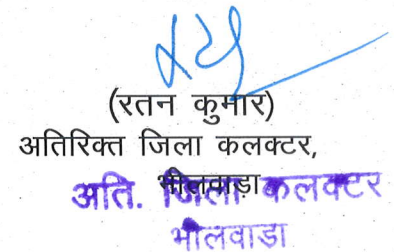 (रतन कुमार)
अतिरिक्त जिला कलक्टर,
भीलवाड़ा
अति. जिला कलक्टर
भीलवाडा